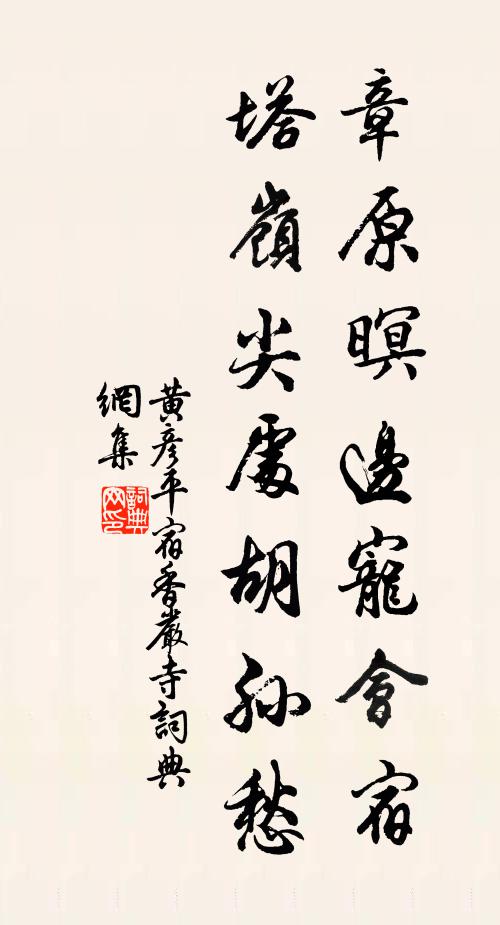 章原暝邊寵會宿
塔嶺尖處胡孫愁
黃彥平宿香嚴寺詞典
網集
詞典
网印